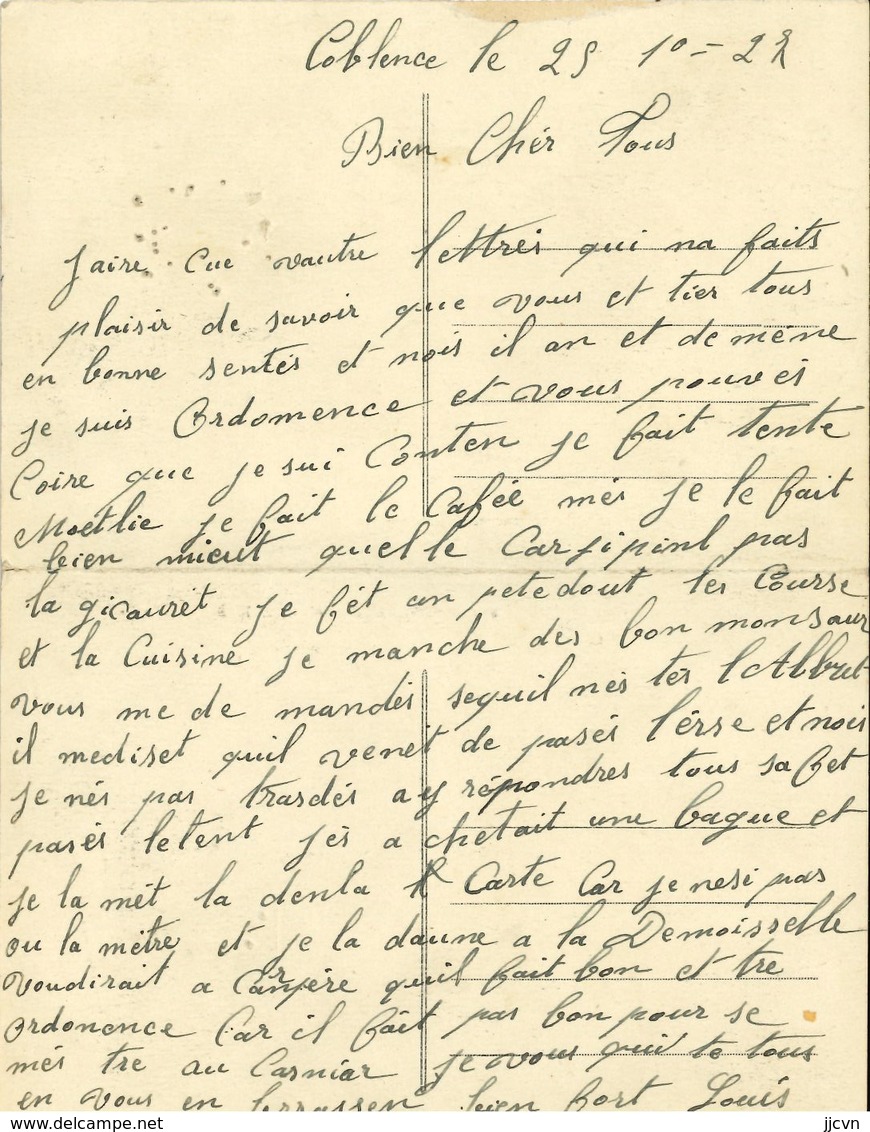 Coblence le 25 10 = 22
Bien Chér Tous
Jaire Cue vautre lettrés qui na faits
plaisir de savoir que vous et tier tous
en bonne sentés et nois il an et de mène
je suis Ordomence et vous pouvés
Coire que je sui Conten je fait tente
je fait le Cafée més je le fait
bien mieut quelle pas
la je fét un petedout les Course
et la Cuisine je manche des bon monsaur
vous me de mandés sequil nés tés
il mediset quil venét de pasés l'érse et nois
je nés pas trasdés a y répondres tous sa fet
pasés letent jés a chetait une bague et
je la mét la denla Carte Car je nesi pas
ou la métre et je la daune a la Demoisselle
voudirait a quil fait bon et tre
Ordonence Car il fait pas bon pour se
més tre au Carniar je vous qui te tous
en vous en brrassen bien fort Louis
jjcvn